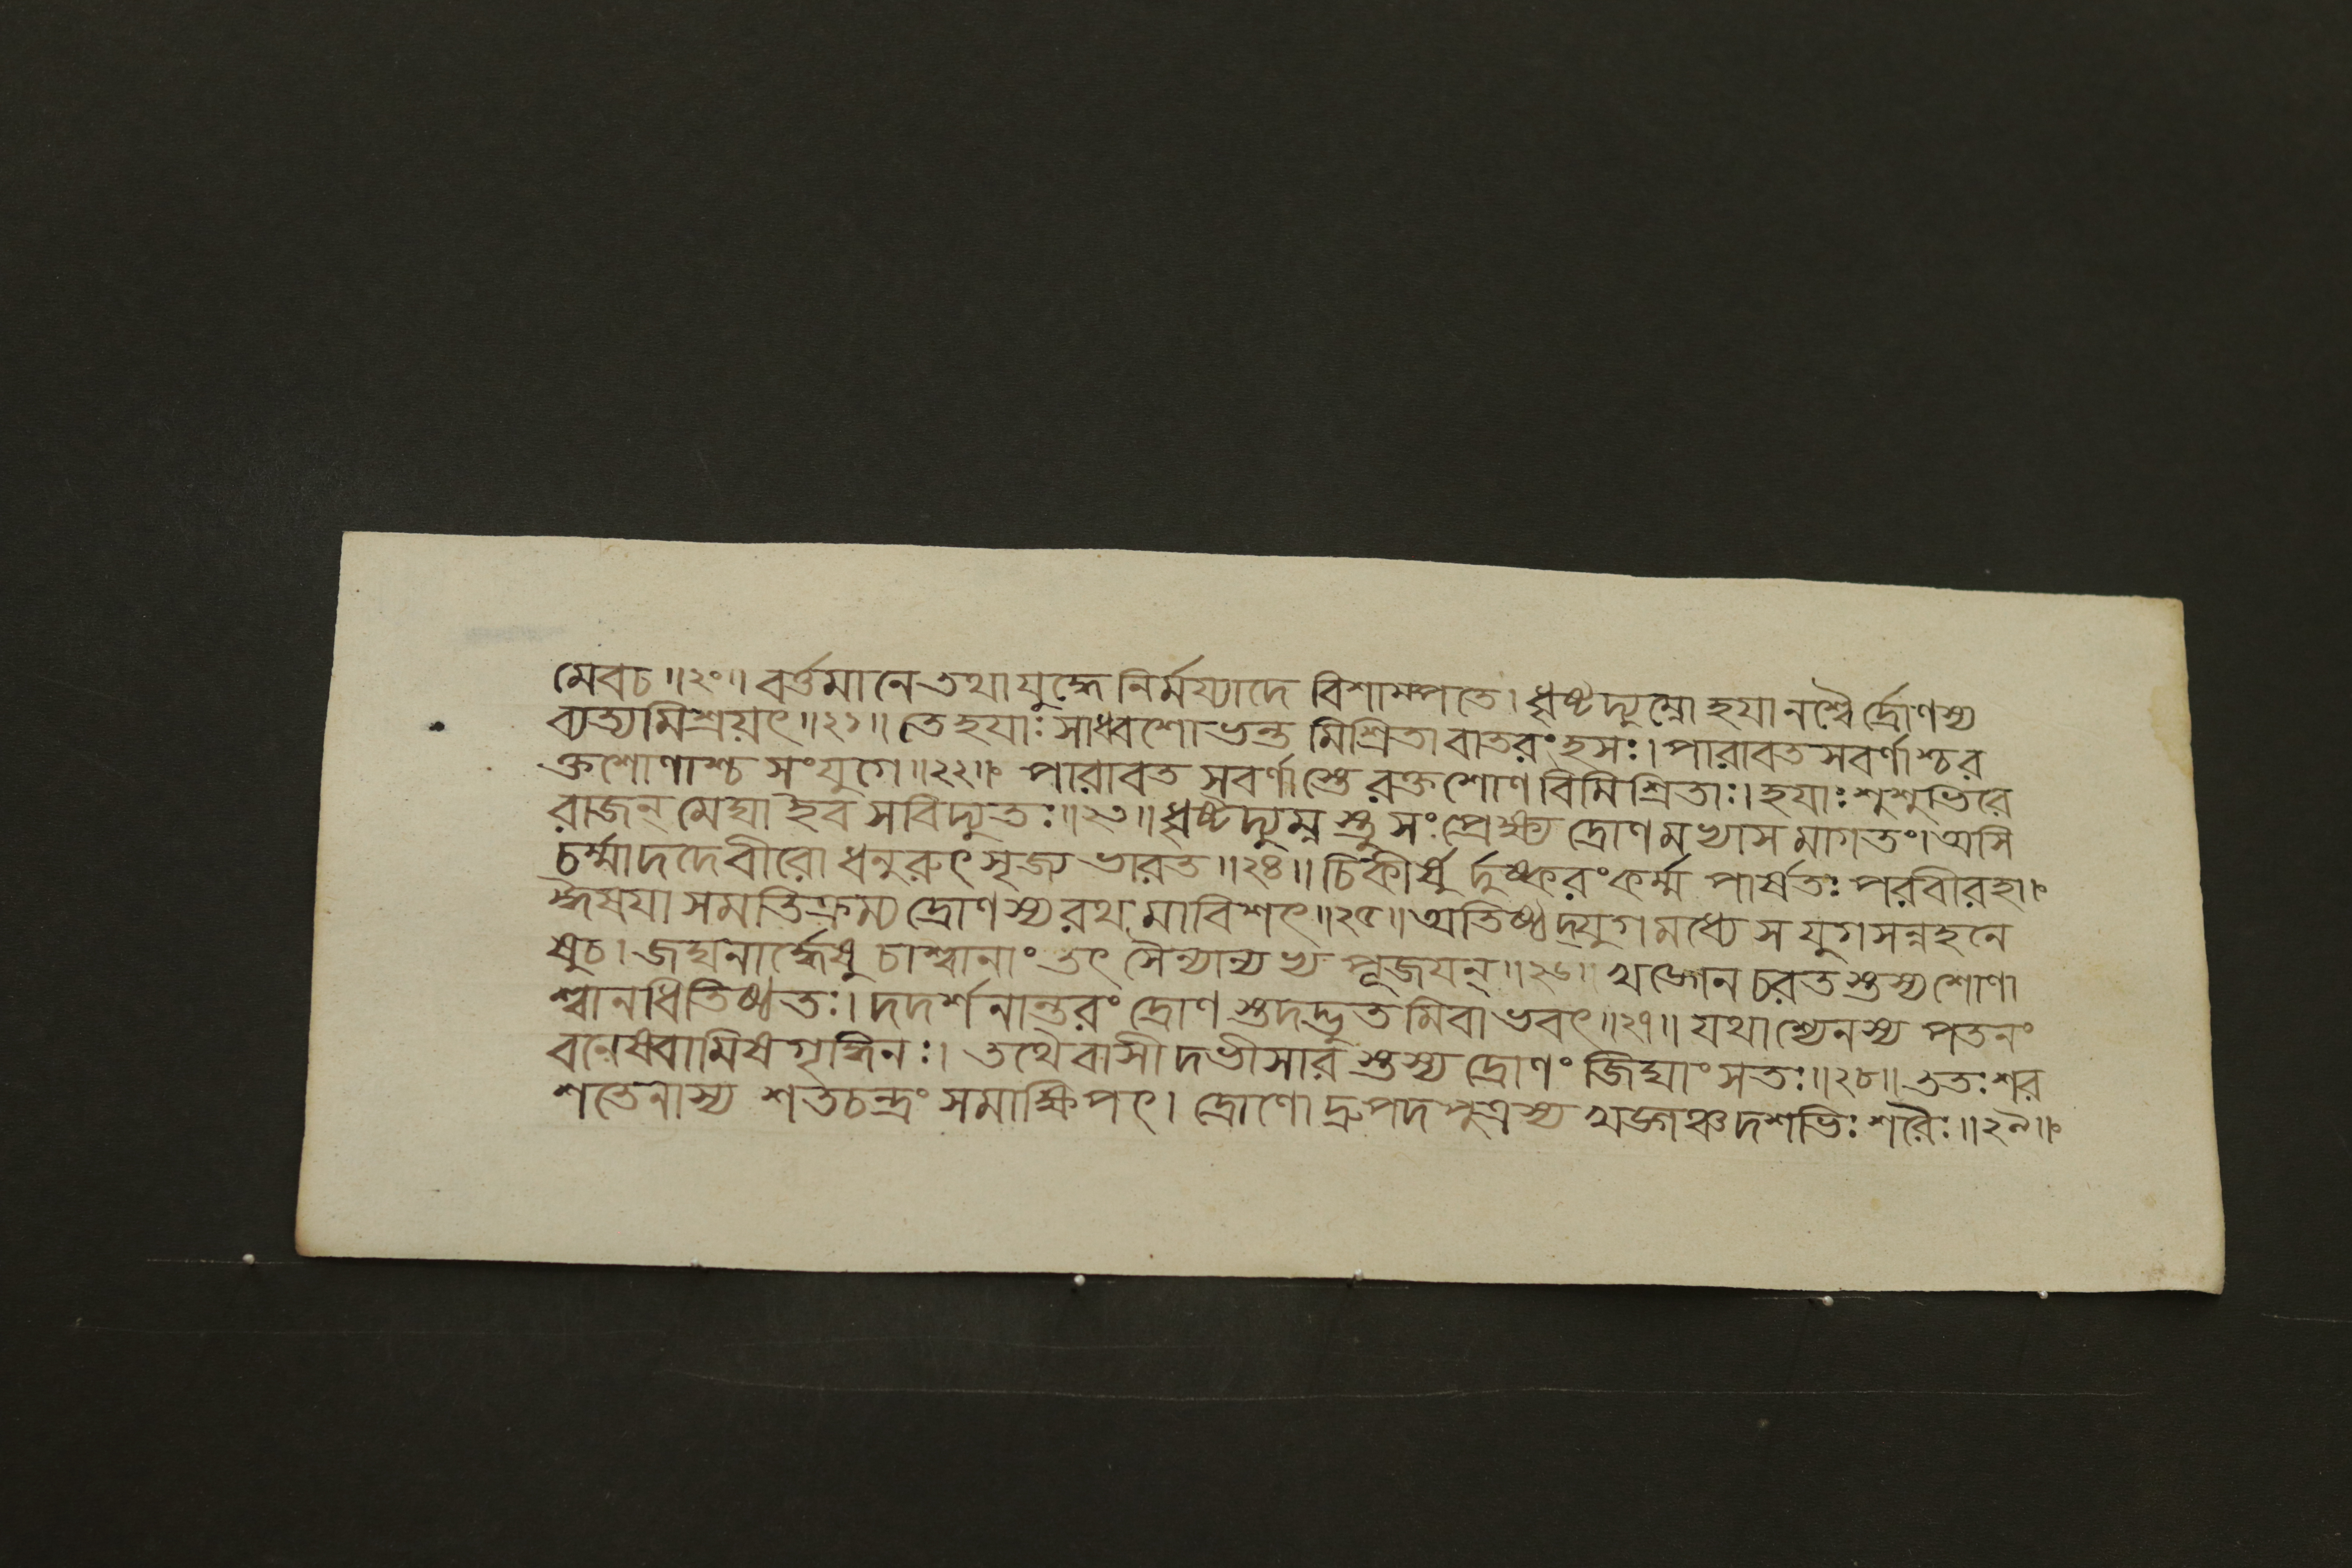 মেবচ॥২০॥ বর্ত্তমানেতথাযুদ্ধে নির্মর্য্যাদে বিশাম্পতে। ধৃষ্টদ্যুম্নোহযানশ্বৈর্দ্রোণস্য
ব্যত্যমিশ্রয়ৎ॥২১॥ তেহযাঃসাধ্বশোভন্ত মিশ্রিতাবাতরংহসঃ। পারাবতসবর্ণাশ্চর
ক্তশোণাশ্চ সংযুগে॥২২॥ পারাবত সবর্ণাস্তে রক্তশোণবিমিশ্রিতাঃ। হযাঃশুশুভিরে
রাজন্ মেঘাইব সবিদ্যুতঃ॥২৩॥ ধৃষ্টদ্যুম্নস্তুসংপ্রেক্ষ্য দ্রোণমখাসমাগতং। অসি
চর্ম্মাদদেবীরো ধনুরুৎসৃজ্য ভারত॥২৪॥ চিকীর্ষুর্দুষ্করংকর্ম্ম পার্ষতঃ পরবীরহা।
দ্ধৈষযা সমতিক্রম্য দ্রোণস্যরথমাবিশৎ॥২৫॥ অতিষ্ঠদ্যুগমধ্যেস যুগসন্নহনে
ষুচ। জঘনার্দ্ধেষু চাশ্বানাং তৎ সৈন্যান্যখ্য পূজযন্॥২৬॥ খড্গেন চরতস্তস্যশোণা
শ্বানধিতিষ্ঠতঃ। দদর্শনান্তরং দ্রোণস্তদদ্ভুতমিবাভবৎ॥২৭॥ যথাশ্যেনস্য পতনং
বনেষ্বেবামিষগৃদ্ধিনঃ। তথৈবাসীদভীসারস্তস্য দ্রোণং জিঘাংসতঃ॥২৮॥ ততঃশর
শতেনাস্য শতচন্দ্রং সমাক্ষিপৎ। দ্রোণোদ্রুপদপুত্রস্য খড্গঞ্চদশভিঃ শরৈঃ॥২৯॥